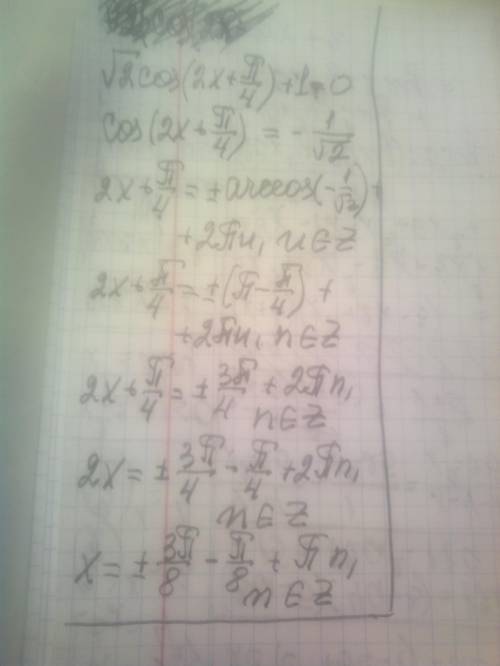 √2cos(2x+π/4)+1=0
cos(2x+π/4) = -1/√2
2x+π/4 = ±arccos(-1/√2)+
+2πn, n∈Z
2x+π/4 = ±(π-π/4)+
+2πn, n∈Z
2x+π/4 = ±3π/4+2πn,
n∈Z
2x = ±3π/4-π/4+2πn,
n∈Z
x = ±3π/8-π/8+πn,
n∈Z